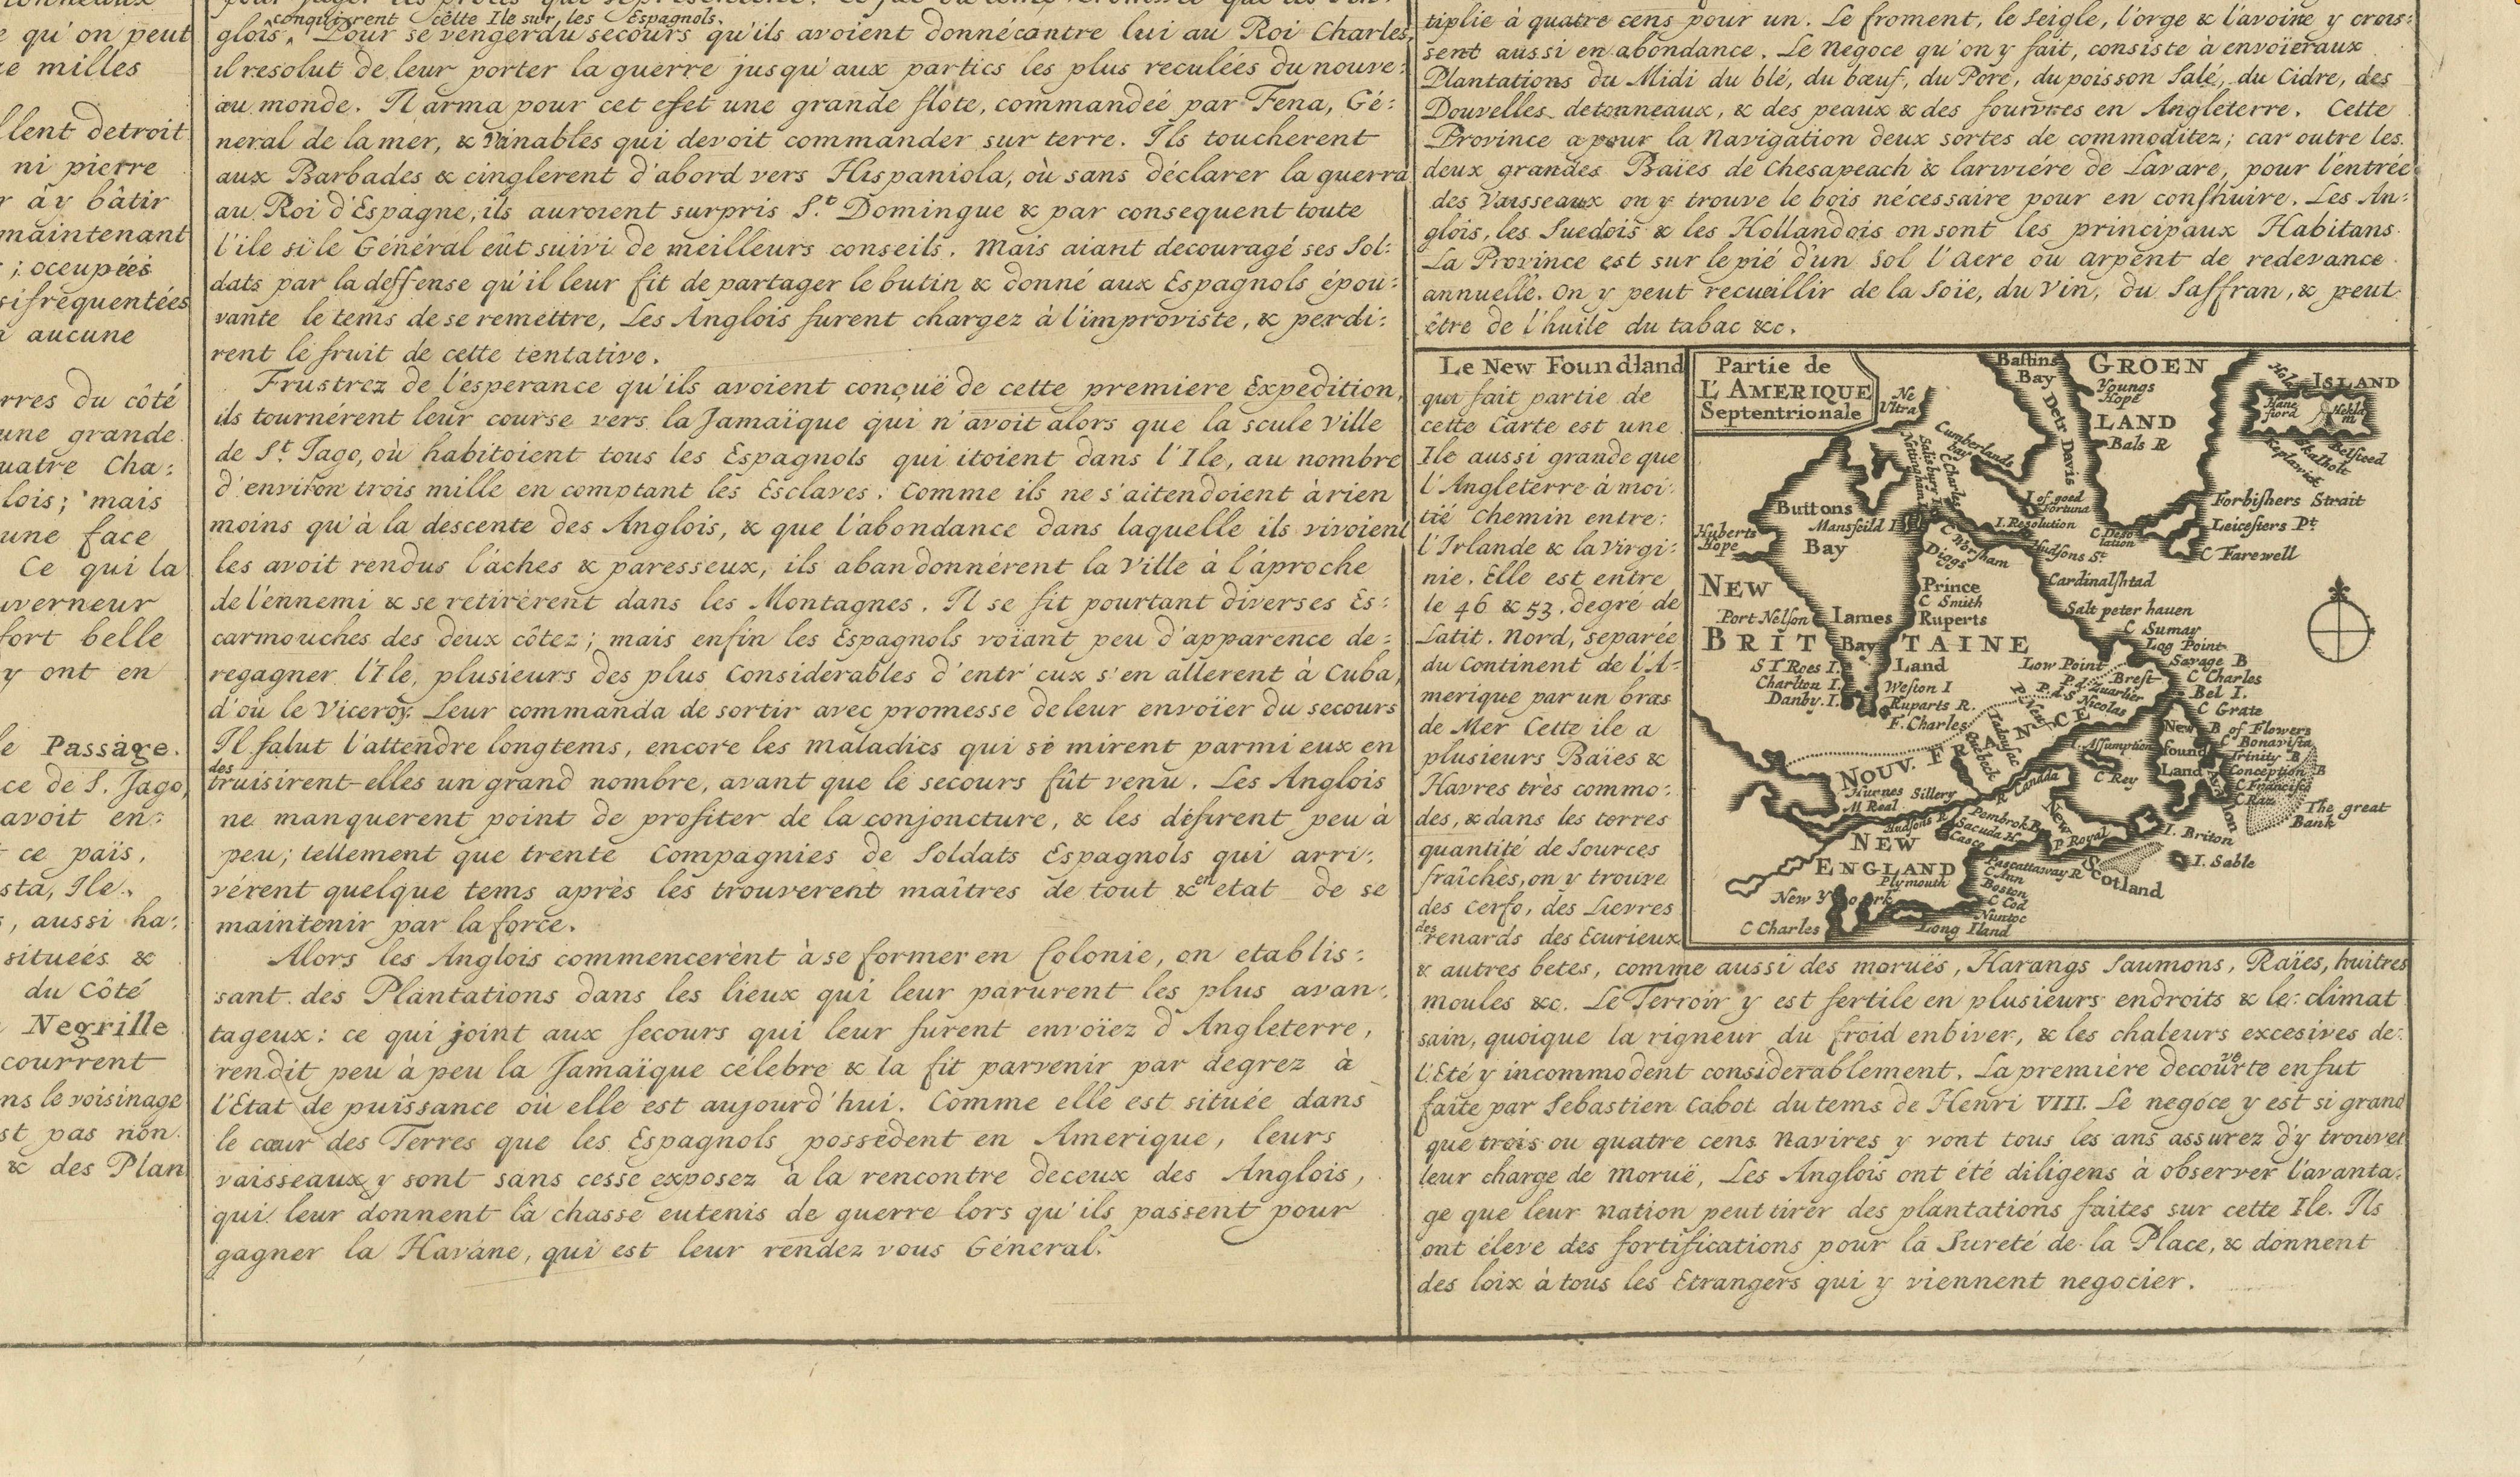 qu'on peut
milles
detroit
ni pierre
ây bâtir
maintenant
; ocupéés
sifrequentées
aucune
du côté
une grande
Cha:
lois; mais
une face
Ce qui la
fort belle
y ont en
Passage.
ce de S. Jago,
avoit en:
ce païs,
Ile.
, aussi ha:
situeés &
du Côté
Negrille
courrent
ns le voisinage
pas non
& des Plan
conquirent cette Ile sur les Espagnols.
glois, Pour se venger du secours qu'ils avoient donné contre lui au Roi Charles,
il resolut de leur porter la guerre jusqu'aux partics les plus reculées du nouve:
au monde. Il arma pour cet efet une grande flote, commandeé par Fena, Gé:
neral de la mer, & Vanables qui devoit commander sur terre. Ils toucherent
aux Barbades & cinglerent d'abord vers Hispaniola, où sans déclarer la guerra
au Roi d'Espagne, ils auroient surpris S.t Domingue & par consequent toute
l'ile si le Général eût suivi de meilleurs conseils. Mais aiant decouragé ses Sol:
dats par la deffense qu'il leur fit de partager le butin & donné aux Espagnols épou:
vante le tems de se remettre, Les Anglois furent chargez à l'improviste, & perdi:
rent le fruit de cette tentative.
Frustrez de l'esperance qu'ils avoient conçuë de cette premiere Expedition,
ils tournérent leur course vers la Jamaïque qui n'avoit alors que la scule ville
de S.t Jago, où habitoient tous les Espagnols qui itoient dans l'Ile, au nombre
d'environ trois mille en comptant les Esclaves. Comme ils ne s'aitendoient à rien
moins qu'à la descente des Anglois, & que l'abondance dans laquelle ils vivoient
les avoit rendus l'áches & paresseux, ils abandonnérent la Ville à l'áproche
de l'ennemi & se retirérent dans les Montagnes. Il se fit pourtant diverses Es:
carmouches des deux côtez; mais enfin les Espagnols voiant peu d'apparence de:
regagner l'Ile, plusieurs des plus Considerables d'entr'eux s'en allerent à Cuba,
d'où le Viceroy. Leur commanda de sortir avec promesse de leur envoïer du secours
Il falut l'attendre longtems, encore les maladies qui se mirent parmi eux en
des
truisirent-elles un grand nombre, avant que le secours fût venu. Les Anglois
ne manquerent point de profiter de la conjoncture, & les défirent peu à
peu; tellement que trente Compagnies de Soldats Espagnols qui arri:
vérent quelque tems après les trouverent maîtres de tout & en etat de se
maintenir par la force.
Alors les Anglois commencerènt à se former en Colonie, en etablis:
sant des Plantations dans les lieux qui leur parurent les plus avan:
tageux: ce qui joint aux secours qui leur furent envoïez d'Angleterre,
rendit peu à peu la Jamaïque célebre & la fit parvenir par degrez à
l'Etat de puissance où elle est aujourd'hui. Comme elle est située dans
le cœur des Terres que les Espagnols possedent en Amerique, leurs
vaisseaux y sont sans cesse exposez à la rencontre deceux des Anglois,
qui leur donnent la chasse eutenis de guerre lors qu'ils passent pour
gagner la Havane, qui est leur rendez vous Géneral.
tiplie à quatre cens pour un. Le froment, le seigle, l'orge & l'avoine y crois:
sent aussi en abondance. Le Negoce qu'on y fait, consiste à envoïeraux
Plantations du Midi du blé, du bœuf, du Porc, du poisson Salé, du Cidre, des
Douvelles detonneaux, & des peaux & des fourvres en Angleterre. Cette
Province a pour la Navigation deux sortes de commoditez; car outre les
deux grandes Baïes de Chesapeach & lariviére de Lavare, pour l'entrée
des Vaisseaux on y trouve le bois nécessaire pour en construire. Les An:
glois, les Suedois & les Hollandois en sont les principaux Habitans.
La Province est sur le pié d'un Sol l'Acre ou arpent de redevance
annuelle. On y peut recueillir de la Soïe, du Vin, du Saffran, & peut
être de l'huile du tabac &c.
Le New Foundland
qui fait partie de
cette Carte est une
Ile aussi grande que
l'Angleterre à moi:
tié Chemin entre:
l'Irlande & la Virgi:
nie. Elle est entre
le 46 & 53. degré de
Latit. Nord, separée
du Continent de l'A:
merique par un bras
de Mer Cette ile a
plusieurs Baïes &
Havres très commo:
des, & dans les terres
quantité de Sources
fraîches, on y trouve
des Cerfs, des Lievres
des
renards des Ecurieux
& autres betes, comme aussi des moruës, Harangs Saumons, Raïes, huitres
moules &c. Le Terroir y est fertile en plusieurs endroits & le climat
sain, quoique la rigneur du froid enbiver, & les chaleurs excesives de:
l'Eté y incommodent considerablement. La première decouverte en fut
faite par Sebastien Cabot du tems de Henri VIII. Le negoce y est si grand
que trois ou quatre cens Navires y vont tous les ans assurez d'y trouver
leur charge de moruë, Les Anglois ont été diligens à observer l'avanta:
ge que leur nation peut tirer des plantations faites sur cette Ile. Ils
ont éleve des fortifications pour la Sureté de la Place, & donnent
des loix à tous les Etrangers qui y viennent negocier.
Partie de
L'AMERIQUE
Septentrionale
Ne Ultra
Baffins Bay
GROEN
LAND
Youngs Hope
Bals R
Detr Davis
ISLAND
Hekla m
Belfteed
Skalholt
Cumberlands bay
Salisbury I
C Charles
Nottingham
Buttons
Bay
Mansfeild I
Huberts Hope
I of goed Fortuna
I. Resolution
Hudsons St.
C Worsham
Diggs
C Desolation
Forbishers Strait
Leicesters Pt.
C Farewell
Cardinalshtad
Salt peter hauen
C Sumay
Log Point
Savage B
C Charles
Bel I.
C Grate
NEW
BRIT TAINE
Port Nelson
Iames
Bay
Prince
C Smith
Ruperts
Land
S T. Roes I.
Charlton I.
Danby. I.
Weston I
Ruparts R.
F. Charles
Low Point
Brest
P.d. Quartier
P.d.S Nicolas
Tadousac
Quebeck
NOUV. FRANCE
Assumption
C Rey
New found Land
B of Flowers
C Bonavista
Trinity B
Conception B
C Francisco
C Raz
The great Bank
Hurnes
Sillery
M Real
R Canada
Hudsons R
Pembrok B
Sacuda H
Casco
New Scotland
P Royal
I. Briton
I. Sable
NEW
ENGLAND
Plymouth
Pascattaway R
C Ann
Boston
C Cod
Nantoc
New Yoork
C Charles
Long Iland